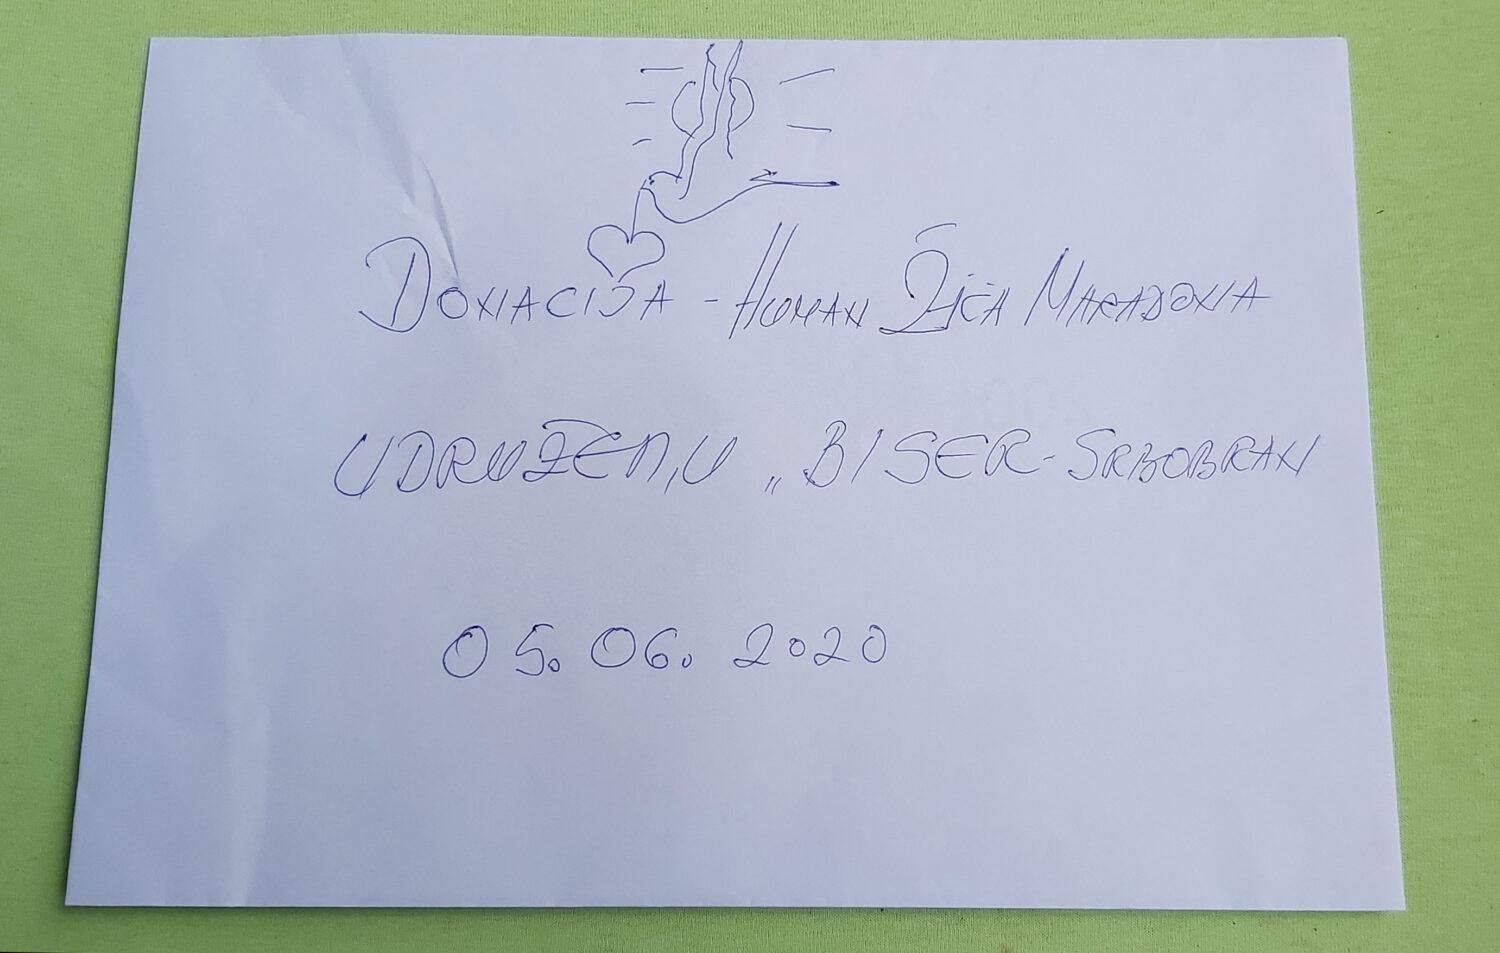 DONACIJA - HUMAN ŽIČA MARADONA
UDRUŽENJU „BISER - SRBOBRAN
05. 06. 2020